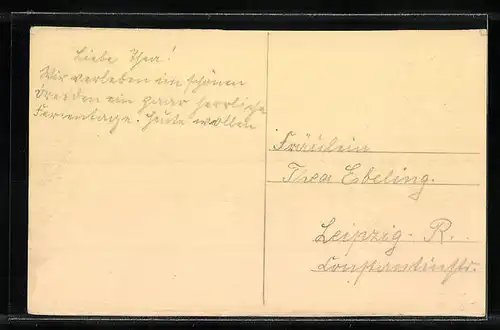 Liebe Thea!
Wir verleben im schönen
Dresden ein paar herrliche
Ferientage. Heute wollen
Fräulein
Thea Ebeling.
Leipzig-R.
Constantinstr.